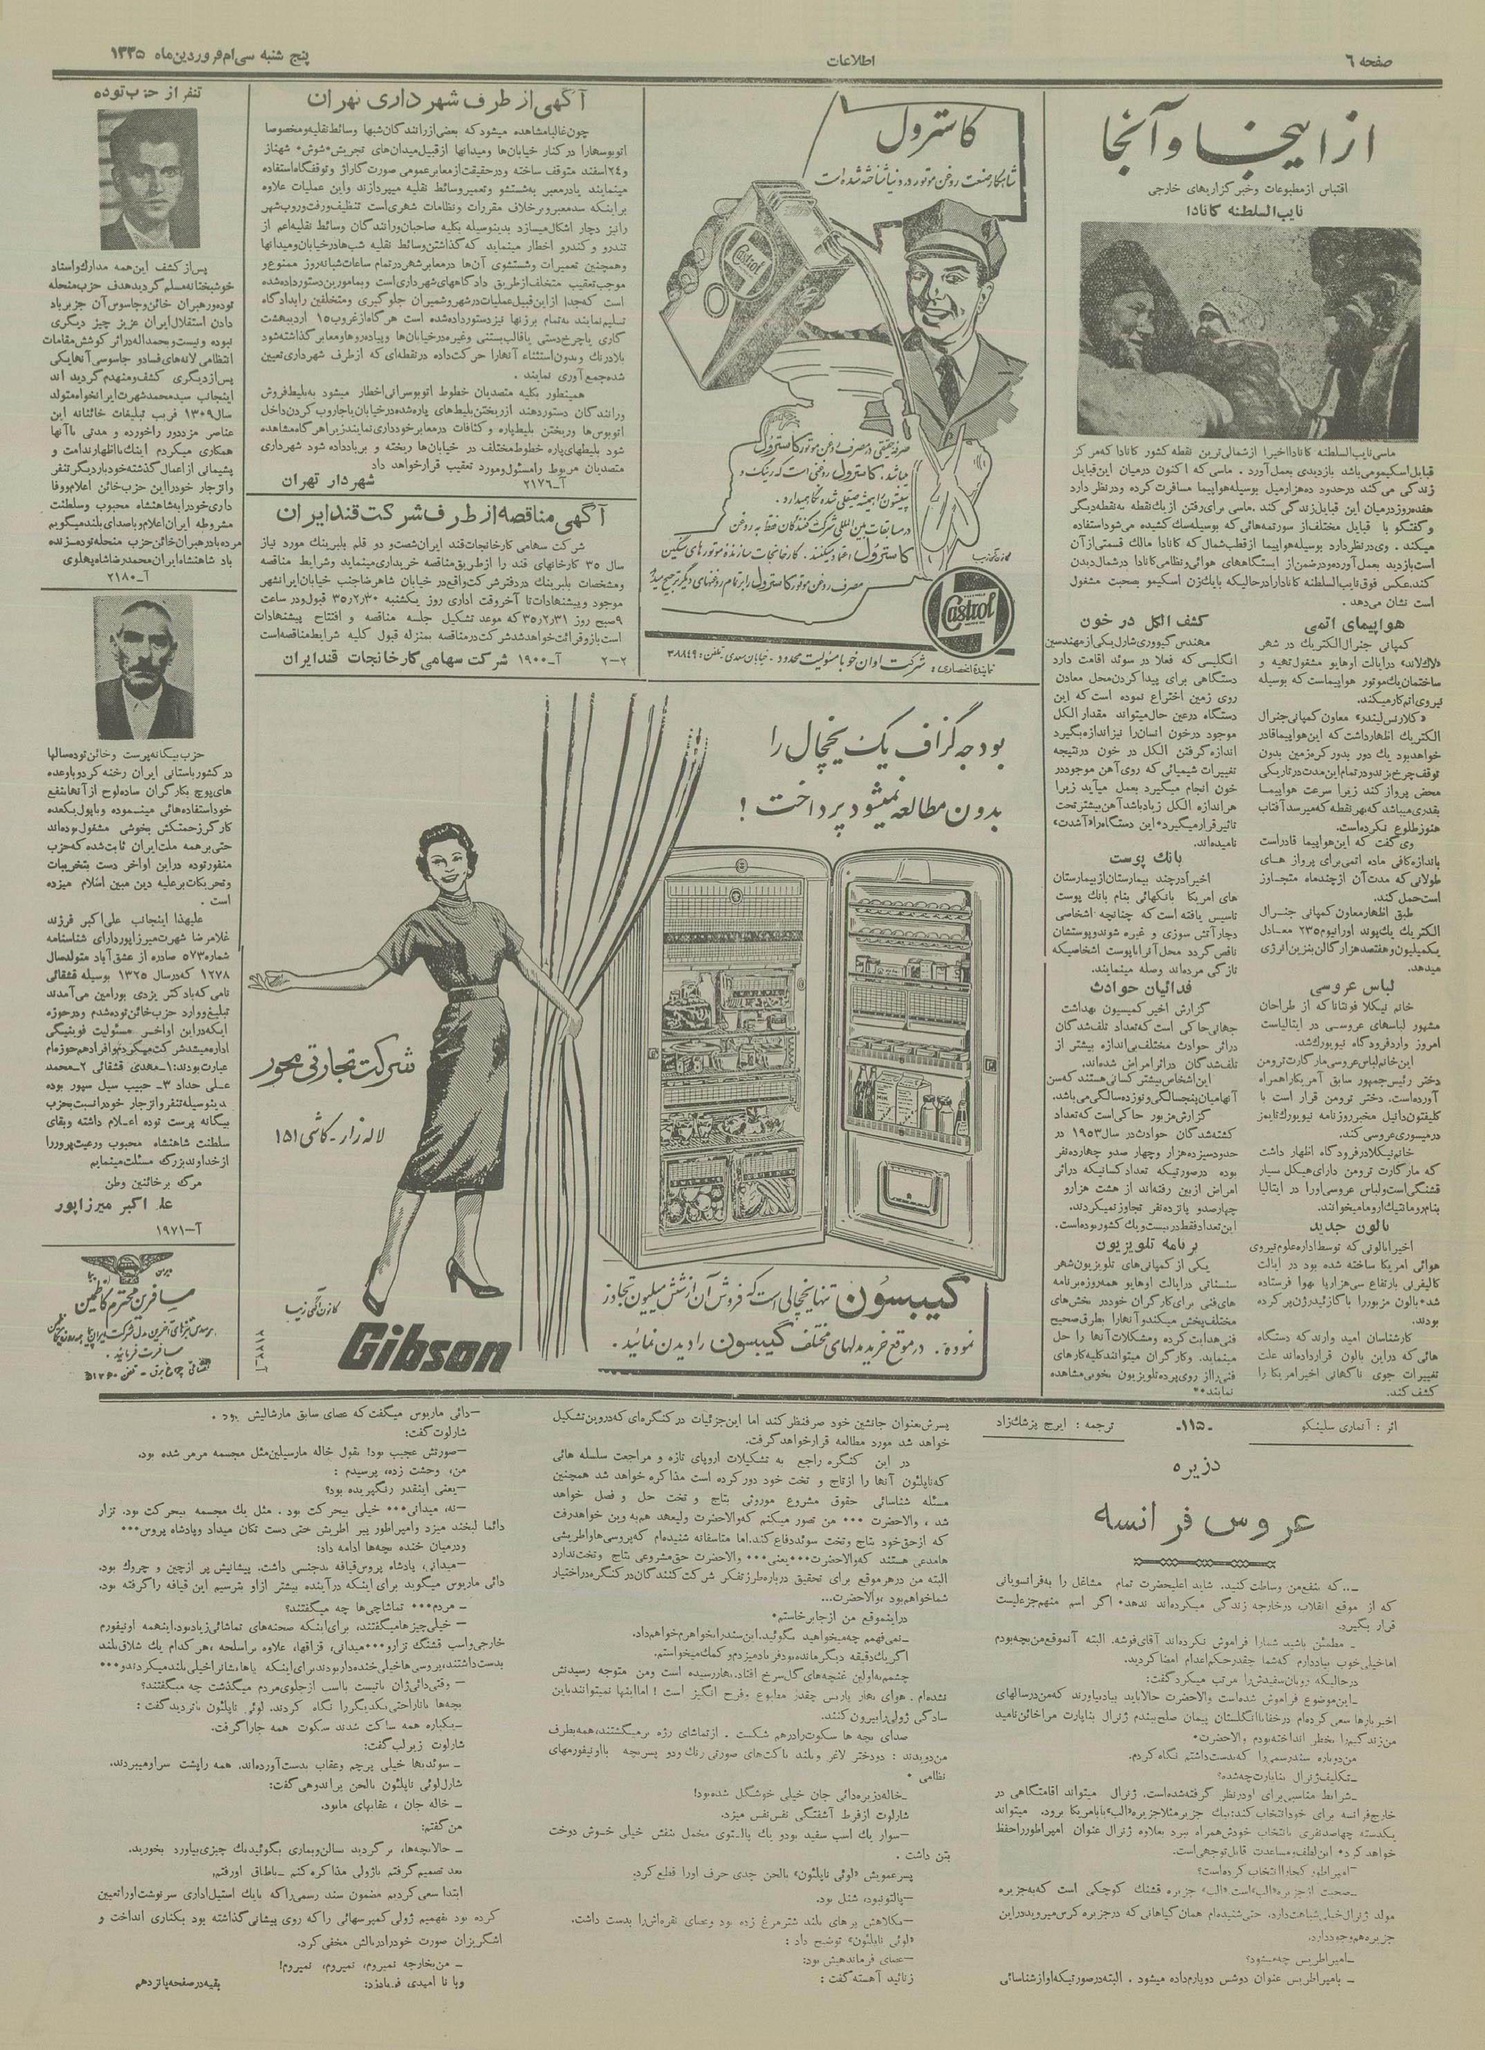 صفحه ۶
اطلاعات
پنج شنبه سی‌ام فروردین‌ماه ۱۳۳۵
از اینجا و آنجا
اقتباس از مطبوعات و خبرگزاریهای خارجی
نایب‌السلطنه کانادا
ماسی نایب السلطنه کانادا اخیرا از شمالی ترین نقطه کشور کانادا که مرکز
قبایل اسکیمو می‌باشد بازدیدی بعمل آورد . ماسی که اکنون درمیان این قبایل
زندگی می کند درحدود ده هزار میل بوسیله هواپیما مسافرت کرده و در نظر دارد
هفده روز درمیان این قبایل زندگی کند . ماسی برای رفتن از یک نقطه به نقطه دیگر
و گفتگو با قبایل مختلف از سورتمه هائی که بوسیله سگ کشیده می‌شود استفاده
میکند . وی در نظر دارد بوسیله هواپیما از قطب شمال که کانادا مالک قسمتی از آن
است بازدید بعمل آورده و در ضمن از ایستگاههای هوائی و نظامی کانادا در شمال دیدن
کند. عکس فوق نایب السلطنه کانادا را در حالیکه با یک زن اسکیمو بصحبت مشغول
است نشان می‌دهد .
هواپیمای اتمی
کمپانی جنرال الکتریک در شهر
«لاک‌لند» در ایالت اوهایو مشغول تهیه و
ساختمان یک موتور هواپیماست که بوسیله
نیروی اتم کار میکند.
«کلارنس لیندر» معاون کمپانی جنرال
الکتریک اظهار داشت که این هواپیما قادر
خواهد بود یک دور بدور کره زمین بدون
توقف چرخ بزند و در تمام این مدت در تاریکی
محض پرواز کند زیرا سرعت هواپیما
بقدری میباشد که بهر نقطه که میرسد آفتاب
هنوز طلوع نکرده است.
وی گفت که این هواپیما قادر است
باندازه کافی ماده اتمی برای پرواز های
طولانی که مدت آن از چند ماه متجاوز
است حمل کند.
طبق اظهار معاون کمپانی جنرال
الکتریک یک پوند اورانیوم ۲۳۵ معادل
یک میلیون و هفتصد هزار گالن بنزین انرژی
میدهد.
لباس عروسی
خانم نیکلا فونتانا که از طراحان
مشهور لباسهای عروسی در ایتالیاست
امروز وارد فرودگاه نیویورک شد.
این خانم لباس عروسی مارگارت ترومن
دختر رئیس جمهور سابق آمریکا را همراه
آورده است. دختر ترومن قرار است با
کلیفتون دانیل مخبر روزنامه نیویورک تایمز
در میسوری عروسی کند.
خانم نیکلا در فرودگاه اظهار داشت
که مارگارت ترومن دارای هیکل بسیار
قشنگی است و لباس عروسی او را در ایتالیا
بنام رومانتیک اروما میخوانند.
بالون جدید
اخیرا بالونی که توسط اداره علوم نیروی
هوائی امریکا ساخته شده بود در ایالت
کالیفرنی بارتفاع سی هزار پا بهوا فرستاده
شد. بالون مزبور را با گاز ئیدرژن پر کرده
بودند.
کارشناسان امید وارند که دستگاه
هائی که در این بالون قرار داده‌اند علت
تغییرات جوی ناگهانی اخیر امریکا را
کشف کند.
کشف الکل در خون
مهندس گیووری شارل یکی از مهندسین
انگلیسی که فعلا در سوئد اقامت دارد
دستگاهی برای پیدا کردن محل معادن
روی زمین اختراع نموده است که این
دستگاه در عین حال میتواند مقدار الکل
موجود در خون انسان را نیز اندازه بگیرد
اندازه گرفتن الکل در خون در نتیجه
تغییرات شیمیائی که روی آهن موجود در
خون انجام میگیرد بعمل میآید زیرا
هر اندازه الکل زیاد باشد آهن بیشتر تحت
تاثیر قرار میگیرد. این دستگاه را «آشدت»
نامیده‌اند.
بانک پوست
اخیرأ در چند بیمارستان از بیمارستان
های امریکا بانکهائی بنام بانک پوست
تاسیس یافته است که چنانچه اشخاصی
دچار آتش سوزی و غیره شوند و پوستشان
ناقص گردد محل آنرا با پوست اشخاصیکه
تازگی مرده‌اند وصله مینمایند.
فدائیان حوادث
گزارش اخیر کمیسیون بهداشت
جهانی حاکی است که تعداد تلف شدگان
در اثر حوادث مختلف بی‌اندازه بیشتر از
تلف شدگان در اثر امراض شده‌اند.
این اشخاص بیشتر کسانی هستند که سن
آنها میان پنجسالگی و نوزده سالگی می‌باشد.
گزارش مزبور حاکی است که تعداد
کشته شدگان حوادث در سال ۱۹۵۳ در
حدود سیزده هزار و چهار صد و چهارده نفر
بوده درصورتیکه تعداد کسانیکه در اثر
امراض از بین رفته‌اند از هشت هزار و
چهارصد و پانزده نفر تجاوز نمیکردند.
این تعداد فقط در بیست و یک کشور بوده است.
برنامه تلویزیون
یکی از کمپانی های تلویزیون شهر
سنسناتی در ایالت اوهایو همه روزه برنامه
های فنی برای کارگران خود در بخش های
مختلف پخش میکند و آنها را بطرق صحیح
فنی هدایت کرده و مشکلات آنها را حل
مینماید. و کارگران میتوانند کلیه کارهای
فنی را از روی پرده تلویزیون بخوبی مشاهده
نمایند..
کاسترول
شاهکار صنعت روغن موتور در دنیا شناخته شده است
Castrol
صرفه حقیقی در مصرف روغن موتور کاسترول
میباشد. کاسترول روغنی است که رینگ و
پیستون را همیشه صیقلی شده نگاهمیدارد .
در مسابقات بین المللی شرکت کنندگان فقط به روغن
کاسترول اعتماد میکنند . کارخانجات سازنده موتورهای سنگین
مصرف روغن موتور کاسترول را بر تمام روغنهای دیگر ترجیح میدهند
کانون آگهی زیبا
Castrol
نماینده انحصاری : شرکت اوان خو با مسئولیت محدود . خیابان سعدی . تلفن : ۳۸۸۴۹
آگهی از طرف شهرداری تهران
چون غالبا مشاهده میشود که بعضی از رانندگان شبها وسائط نقلیه و مخصوصا
اتوبوسها را در کنار خیابان ها و میدانها از قبیل میدان‌های تجریش، شوش، شهناز
و ۲۴ اسفند متوقف ساخته و در حقیقت از معابر عمومی صورت گاراژ و توقفگاه استفاده
مینمایند یا در معبر به شستشو و تعمیر وسائط نقلیه میپردازند و این عملیات علاوه
بر اینکه سد معبر و بر خلاف مقررات و نظامات شهری است تنظیف و رفت و روب شهر
را نیز دچار اشکال میسازد بدینوسیله بکلیه صاحبان و رانندگان وسائط نقلیه اعم از
تندرو و کندرو اخطار مینماید که گذاشتن وسائط نقلیه شب‌ها در خیابان و میدانها
و همچنین تعمیرات و شستشوی آن‌ها در معابر شهر در تمام ساعات شبانه روز ممنوع و
موجب تعقیب متخلف از طریق دادگاههای شهرداری است و بمامورین دستور داده شده
است که جدا از این قبیل عملیات در شهر و شمیران جلوگیری و متخلفین را بدادگاه
تسلیم نمایند به تمام برزنها نیز دستور داده شده است هر گاه از غروب ۱۵ اردیبهشت
گاری یا چرخ دستی یا قالب بستنی و غیره در خیابان‌ها و پیاده‌رو‌ها و معابر گذاشته شود
بلادرنگ و بدون استثناء آنها را حرکت داده در نقطه‌ای که از طرف شهرداری تعیین
شده جمع آوری نمایند .
همینطور بکلیه متصدیان خطوط اتوبوسرانی اخطار میشود به بلیط فروش
و رانندگان دستور دهند از ریختن بلیط های پاره شده در خیابان یا جاروب کردن داخل
اتوبوس‌ها و ریختن بلیط پاره و کثافات در معابر خودداری نمایند زیرا هر گاه مشاهده
شود بلیطهای پاره خطوط مختلف در خیابان‌ها ریخته و بر باد داده شود شهرداری
متصدیان مربوط را مسئول و مورد تعقیب قرار خواهد داد
آ-۲۱۷۶ شهردار تهران
آگهی مناقصه از طرف شرکت قند ایران
شرکت سهامی کارخانجات قند ایران شصت و دو قلم بلبرینک مورد نیاز
سال ۳۵ کارخانهای قند را از طریق مناقصه خریداری مینماید و شرایط مناقصه
و مشخصات بلبرینک در دفتر شرکت واقع در خیابان شاهرضا جنب خیابان ایرانشهر
موجود و پیشنهادات تا آخر وقت اداری روز یکشنبه ۳۵/۲/۳۰ قبول و در ساعت
۹ صبح روز ۳۵/۲/۳۱ که موعد تشکیل جلسه مناقصه و افتتاح پیشنهادات
است باز و قرائت خواهد شد شرکت در مناقصه بمنزله قبول کلیه شرایط مناقصه است
۲-۲ آ-۱۹۰۰ شرکت سهامی کارخانجات قند ایران
تنفر از حزب توده
پس از کشف این همه مدارک و اسناد
خوشبختانه مسلم گردید هدف حزب منحله
توده و رهبران خائن و جاسوس آن جز بر باد
دادن استقلال ایران عزیز چیز دیگری
نبوده و نیست و بحمداله در اثر کوشش مقامات
انتظامی لانه‌های فساد و جاسوسی آنها یکی
پس از دیگری کشف و منهدم گردید اند
اینجانب سید محمد شهرت ایرانخواه متولد
سال ۱۳۰۹ فریب تبلیغات خائنانه این
عناصر مزدور را خورده و مدتی با آنها
همکاری میکردم اینک با اظهار ندامت و
پشیمانی از اعمال گذشته خود بار دیگر تنفر
و انزجار خود را از این حزب خائن اعلام و وفا
داری خود را به شاهنشاه محبوب و سلطنت
مشروطه ایران اعلام و با صدای بلند میگویم
مرده باد رهبران خائن حزب منحله توده زنده
باد شاهنشاه ایران محمدرضا شاه پهلوی
آ-۲۱۸۰
حزب بیگانه پرست و خائن توده سالها
در کشور باستانی ایران رخنه کرد و با وعده
های پوچ بکارگران ساده لوح از آنها بنفع
خود استفاده هائی مینموده و با پول یکعده
کارگر زحمتکش بخوشی مشغول بوده‌اند
حتی بر همه ملت ایران ثابت شده که حزب
منفور توده در این اواخر دست بتخریبات
و تحریکات بر علیه دین مبین اسلام میزده
است .
علیهذا اینجانب علی اکبر فرزند
غلامرضا شهرت میرزاپور دارای شناسنامه
شماره ۵۷۳ صادره از عشق آباد متولد سال
۱۲۷۸ که در سال ۱۳۲۵ بوسیله قشقائی
نامی که با دکتر یزدی بورامین می‌آمدند
تبلیغ و وارد حزب خائن توده شدم و در حوزه
ایکه در این اواخر مسئولیت فوبنیگی
اداره میشد شرکت میکردم و افراد هم حوزه‌ام
عبارت بودند: ۱-مهدی قشقائی ۲-محمد
علی حداد ۳- حبیب سیل سپور بوده
بدینوسیله تنفر و انزجار خود را نسبت بحزب
بیگانه پرست توده اعلام داشته و بقای
سلطنت شاهنشاه محبوب و رعیت پرور را
از خداوند بزرک مسئلت مینمایم
مرک بر خائنین وطن
علی اکبر میرزاپور
آ-۱۹۷۱
مسافرین محترم کاظمین
مسافرت فرمائید .
بودجه گزاف یک یخچال را
بدون مطالعه نمیشود پرداخت !
شرکت تجارتی محور
لاله زار - کاشی ۱۵۱
کانون آگهی زیبا
آ-۲۱۲۲
Gibson
گیبسون تنها یخچالی است که فروش آن از شش میلیون تجاوز
نموده . در موقع خرید مدلهای مختلف گیبسون را دیدن نمائید .
اثر : آنماری سلینکو
-۱۱۵-
ترجمه : ایرج پزشک‌زاد
دزیره
عروس فرانسه
-...که بنفع من وساطت کنید. شاید اعلیحضرت تمام مشاغل را به فرانسویانی
که از موقع انقلاب در خارجه زندگی میکرده‌اند ندهد. اگر اسم منهم جزء لیست
قرار بگیرد.
- مطمئن باشید شما را فراموش نکرده‌اند آقای فوشه. البته آنموقع من بچه بودم
اما خیلی خوب بیاد دارم که شما چقدر حکم اعدام امضا کردید.
در حالیکه روبان سفیدش را مرتب میکرد گفت:
-این موضوع فراموش شده است والاحضرت حالا باید بیاد بیاورند که من در سالهای
اخیر بارها سعی کرده‌ام در خفا با انگلستان پیمان صلح ببندم ژنرال بناپارت مرا خائن نامید
من زندگیم را بخطر انداخته بودم والاحضرت.
من دوباره سند رسمی را که بدست داشتم نگاه کردم.
-تکلیف ژنرال بناپارت چه شده؟
-شرایط مناسبی برای او در نظر گرفته شده است. ژنرال میتواند اقامتگاهی در
خارج فرانسه برای خود انتخاب کند: بیک جزیره مثلا جزیره «الب» یا با مریکا برود. میتواند
یکدسته چهارصد نفری بانتخاب خودش همراه ببرد بعلاوه ژنرال عنوان امپراطور را حفظ
خواهد کرد. این لطف و مساعدت قابل توجهی است.
-امپراطور کجا را انتخاب کرده است؟
-صحبت از جزیره «الب» است «الب» جزیره قشنگ کوچکی است که به جزیره
مولد ژنرال خیلی شباهت دارد. حتی شنیده‌ام همان گیاهانی که در جزیره کرس میروید در این
جزیره هم وجود دارد.
-امپراطریس چه میشود؟
- بامپراطریس عنوان دوشس دوپارم داده میشود . البته در صورتیکه او از شناسائی
پسرش بعنوان جانشین خود صرفنظر کند اما این جزئیات در کنگره‌ای که در وین تشکیل
خواهد شد مورد مطالعه قرار خواهد گرفت.
در این کنگره راجع به تشکیلات اروپای تازه و مراجعت سلسله هائی
که ناپلئون آنها را از تاج و تخت خود دور کرده است مذاکره خواهد شد همچنین
مسئله شناسائی حقوق مشروع موروثی بتاج و تخت حل و فصل خواهد
شد ، والاحضرت ... من تصور میکنم که والاحضرت ولیعهد هم به وین خواهد رفت
که از حق خود بتاج و تخت سوئد دفاع کند. اما متاسفانه شنیده‌ام که پروسی ها و اطریشی
ها مدعی هستند که والاحضرت... یعنی... والاحضرت حق مشروعی بتاج و تخت ندارد
البته من در هر موقع برای تحقیق درباره طرز تفکر شرکت کنندگان در کنگره در اختیار
شما خواهم بود ، والاحضرت...
در اینموقع من از جا برخاستم.
-نمی‌فهمم چه میخواهید بگوئید. این سند را بخواهرم خواهم داد.
اگر یک دقیقه دیگر مانده بود فریاد میزدم و کمک میخواستم.
چشمم به اولین غنچه‌های گل سرخ افتاد. بهار رسیده است و من متوجه رسیدنش
نشده‌ام . هوای بهار پاریس چقدر مطبوع و فرح انگیز است ! اما اینها نمیتوانند باین
سادگی ژولی را بیرون کنند.
صدای بچه ها سکوت را در هم شکست . از تماشای رژه برمیگشتند، همه بطرف
من دویدند : دو دختر لاغر و بلند با کت‌های صورتی رنک و دو پسر بچه با اونیفورمهای
نظامی .
-خاله دزیره دائی جان خیلی خوشگل شده بود!
شارلوت از فرط آشفتگی نفس نفس میزد.
-سوار یک اسب سفید بود و یک پالتوی مخمل بنفش خیلی خوش دوخت
بتن داشت .
پسر عمویش «لوئی ناپلئون» با لحن جدی حرف او را قطع کرد.
-پالتو نبود، شنل بود.
-کلاهش پرهای بلند شترمرغ زده بود و عصای نقره‌اش را بدست داشت.
«لوئی ناپلئون» توضیح داد :
-عصای فرماندهیش بود.
زنائید آهسته گفت :
-دائی ماریوس میگفت که عصای سابق مارشالیش بود .
شارلوت گفت:
-صورتش عجیب بود! بقول خاله مارسیلین مثل مجسمه مرمر شده بود.
من، وحشت زده، پرسیدم :
-یعنی اینقدر رنگپریده بود؟
-نه، میدانی... خیلی بیحرکت بود . مثل یک مجسمه بیحرکت بود. تزار
دائما لبخند میزد و امپراطور پیر اطریش حتی دست تکان میداد و پادشاه پروس...
و در میان خنده بچه‌ها ادامه داد:
-میدانی، پادشاه پروس قیافه بدجنسی داشت. پیشانیش پر از چین و چروک بود.
دائی ماریوس میگوید برای اینکه در آینده بیشتر از او بترسیم این قیافه را گرفته بود.
- مردم... تماشاچی‌ها چه میگفتند؟
- خیلی چیزها میگفتند، برای اینکه صحنه‌های تماشائی زیاد بود. اینهمه اونیفورم
خارجی و اسب قشنگ تزار و... میدانی، قزاقها، علاوه بر اسلحه ، هر کدام یک شلاق بلند
بدست داشتند، پروسی ها خیلی خنده دار بودند برای اینکه پاها، شانرا خیلی بلند میکردند و...
- وقتی دائی ژان باتیست با اسب از جلوی مردم میگذشت چه میگفتند؟
بچه‌ها با ناراحتی یکدیگر را نگاه کردند. لوئی ناپلئون با تردید گفت :
-یکباره همه ساکت شدند سکوت همه جا را گرفت.
شارلوت زیر لب گفت:
- سوئدیها خیلی پرچم و عقاب بدست آورده‌اند. همه را پشت سر او میبردند.
شارل لوئی ناپلئون با لحن براندوهی گفت:
- خاله جان ، عقابهای ما بود.
من گفتم:
- حالا بچه‌ها، برگردید سالن و بماری بگوئید یک چیزی بیاورد بخورید.
بعد تصمیم گرفتم با ژولی مذاکره کنم - باطاق او رفتم.
ابتدا سعی کردم مضمون سند رسمی را که با یک استیل اداری سرنوشت او را تعیین
کرده بود بفهمم ژولی کمپرسهائی را که روی پیشانی گذاشته بود بکناری انداخت و
اشگریزان صورت خود را در بالش مخفی کرد.
- من بخارجه نمیروم، نمیروم، نمیروم!
و با نا امیدی فریاد زد:
بقیه در صفحه پانزدهم